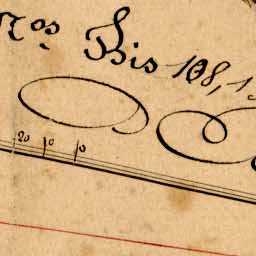 Nos Bis 108,1
20 10 0